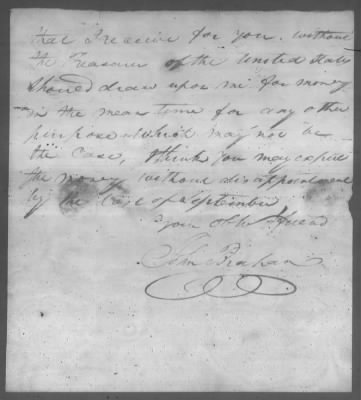 that I receive for you. without
the Treasurer of the United States
should draw upon me for money
in the mean time for any other
purpose which may not be
the case, I think you may expect
the money without disappointment
by the last of September
Your Obt Friend
John Brahan